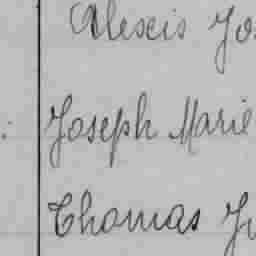 Alexis Jos
Joseph Marie
Thomas